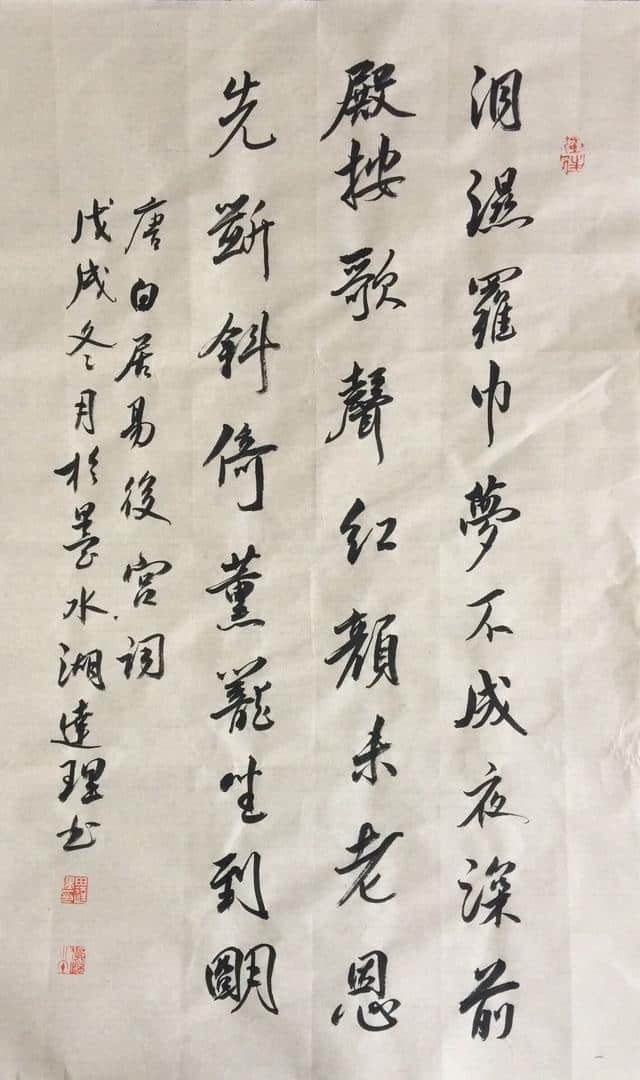 淚濕羅巾夢不成夜深前
殿按歌聲紅顏未老恩
先斷斜倚薰籠坐到明
唐白居易後宮詞
戊戌冬月於墨水湖達理书